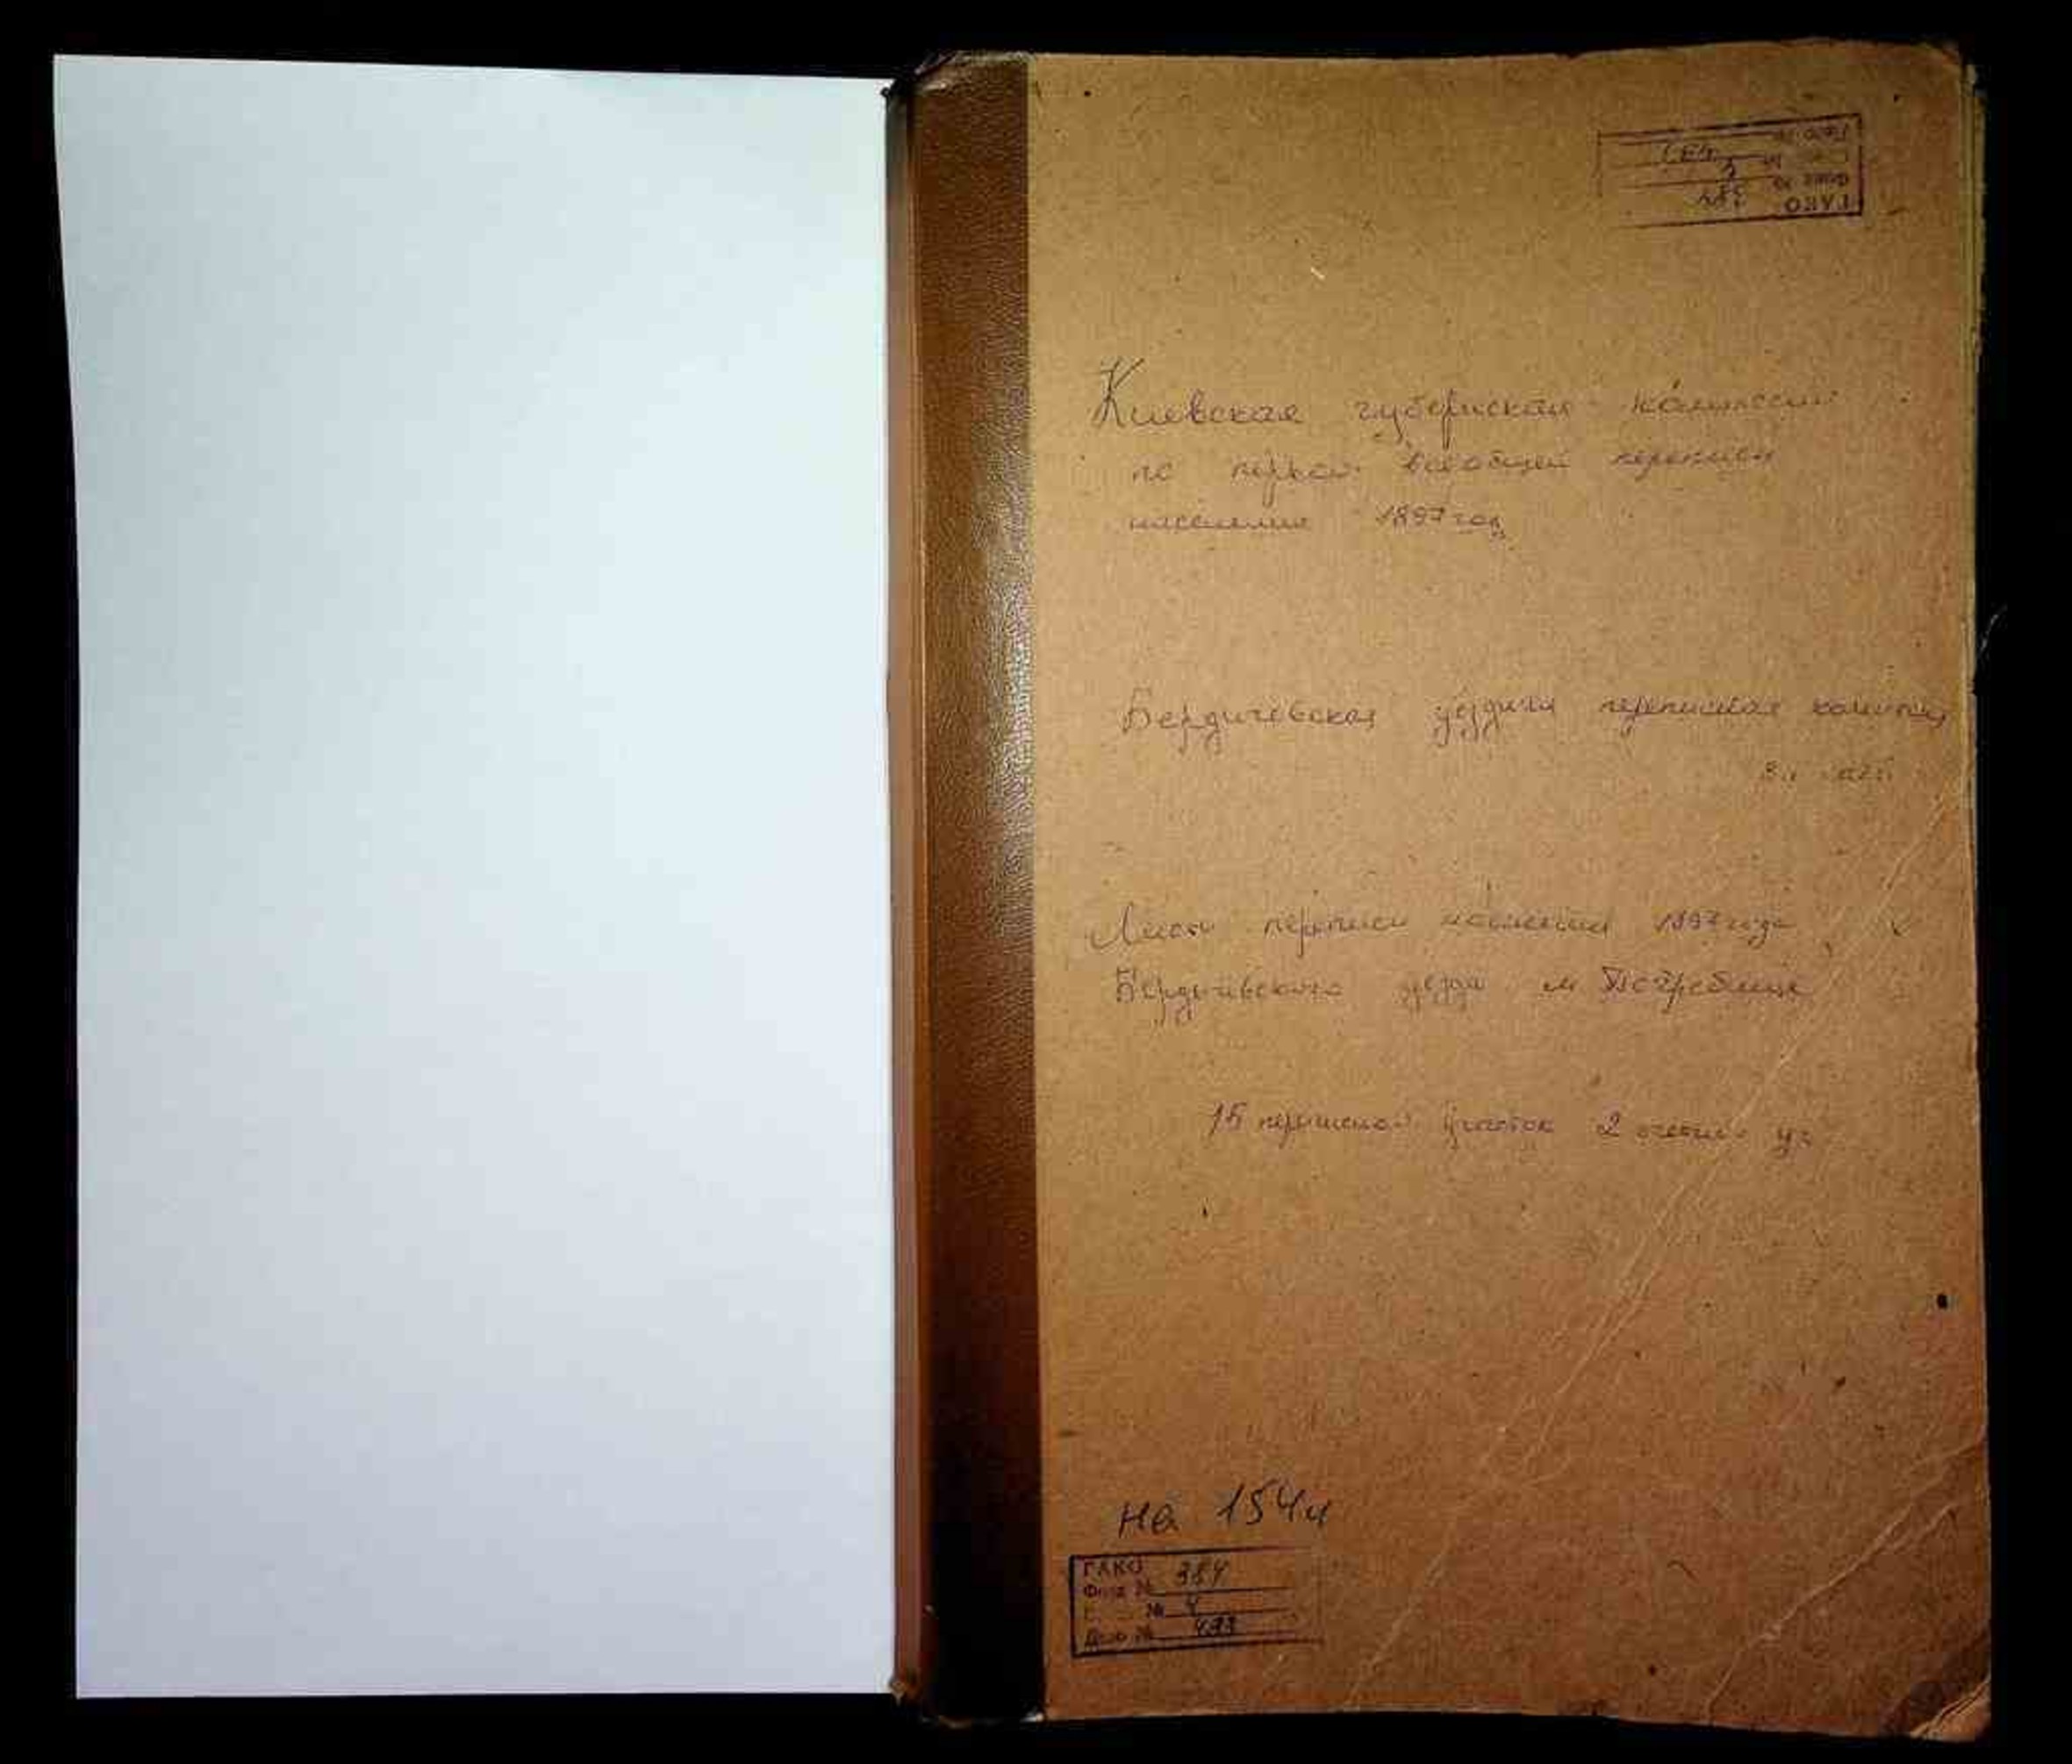 ГАКО
Фонд №
Киевская губернская комиссия
по первой всеобщей переписи
населения 1897 год
Бердичевская уездная переписная
Лист переписи населения 1897 года
Бердичевского уезда м Погребище
15 переписной участок 2 счетн. уч
на 154ч
ГАКО
Фонд № 384
№ 4
Дело № 493